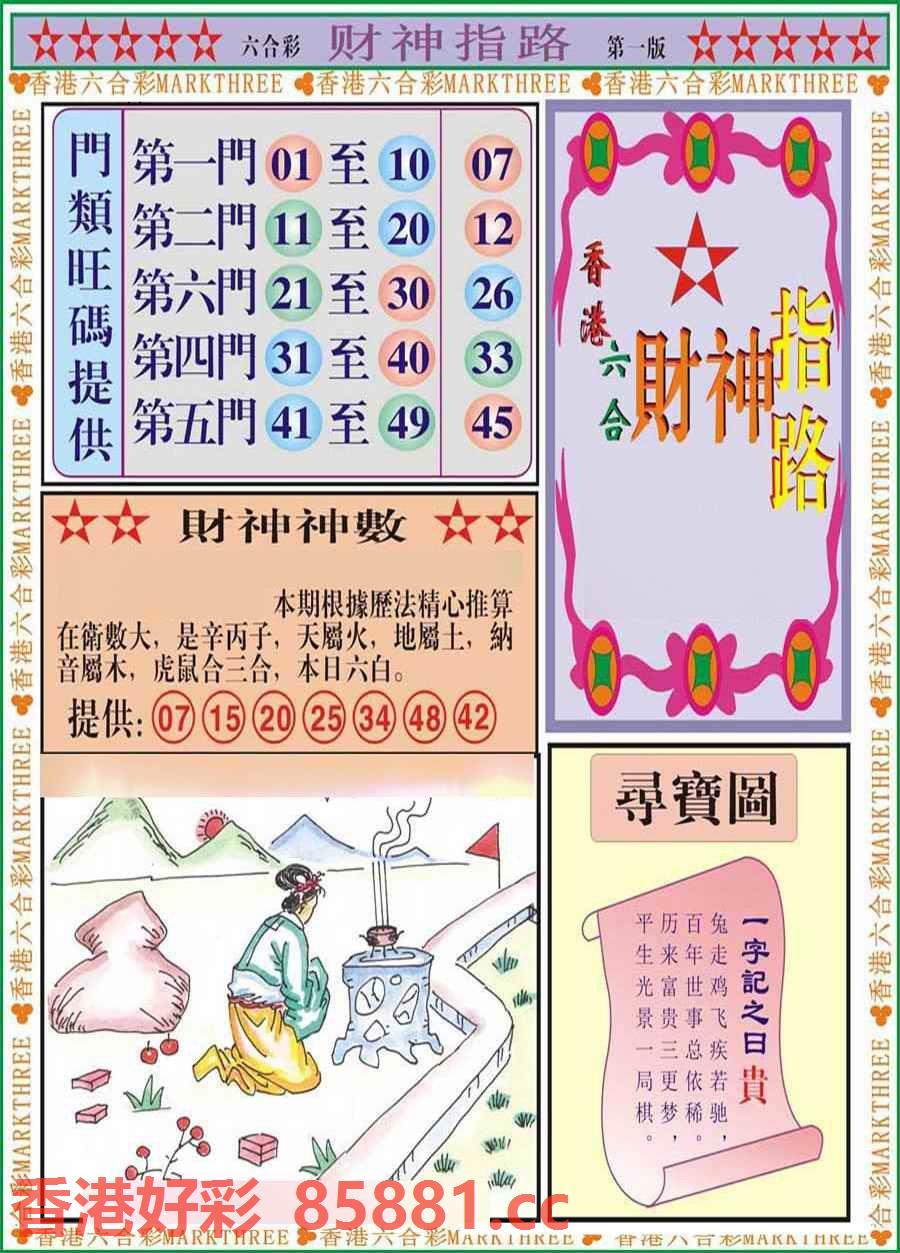 六合彩 财神指路 第一版
香港六合彩MARKTHREE 香港六合彩MARKTHREE 香港六合彩MARKTHREE
門類旺碼提供
第一門 01 至 10 07
第二門 11 至 20 12
第六門 21 至 30 26
第四門 31 至 40 33
第五門 41 至 49 45
香港六合
財神指路
財神神數
本期根據歷法精心推算
在衛數大，是辛丙子，天屬火，地屬土，納
音屬木，虎鼠合三合，本日六白。
提供: 07 15 20 25 34 48 42
尋寶圖
一字記之日貴
兔走鸡飞疾若驰，
百年世事总依稀。
历来富贵三更梦，
平生光景一局棋。
香港六合彩MARKTHREE 香港六合彩MARKTHREE 香港六合彩MARKTHREE 香港六合彩MARKTHREE
香港六合彩MARKTHREE 香港六合彩MARKTHREE 香港六合彩MARKTHREE
香港好彩 85881.cc
香港六合彩MARKTHREE 香港六合彩MARKTHREE 香港六合彩MARKTHREE